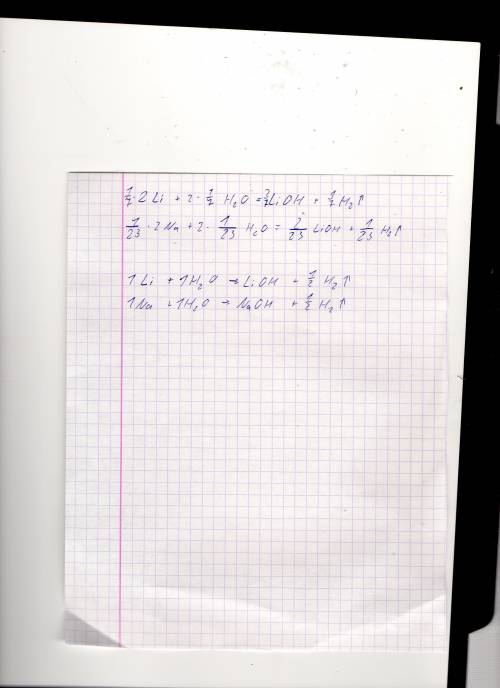 1/7·2Li + 2·1/7 H₂O = 2/7 LiOH + 1/7 H₂↑
1/23·2Na + 2·1/23 H₂O = 2/23 LiOH + 1/23 H₂↑
1Li + 1H₂O → LiOH + 1/2 H₂↑
1Na + 1H₂O → NaOH + 1/2 H₂↑